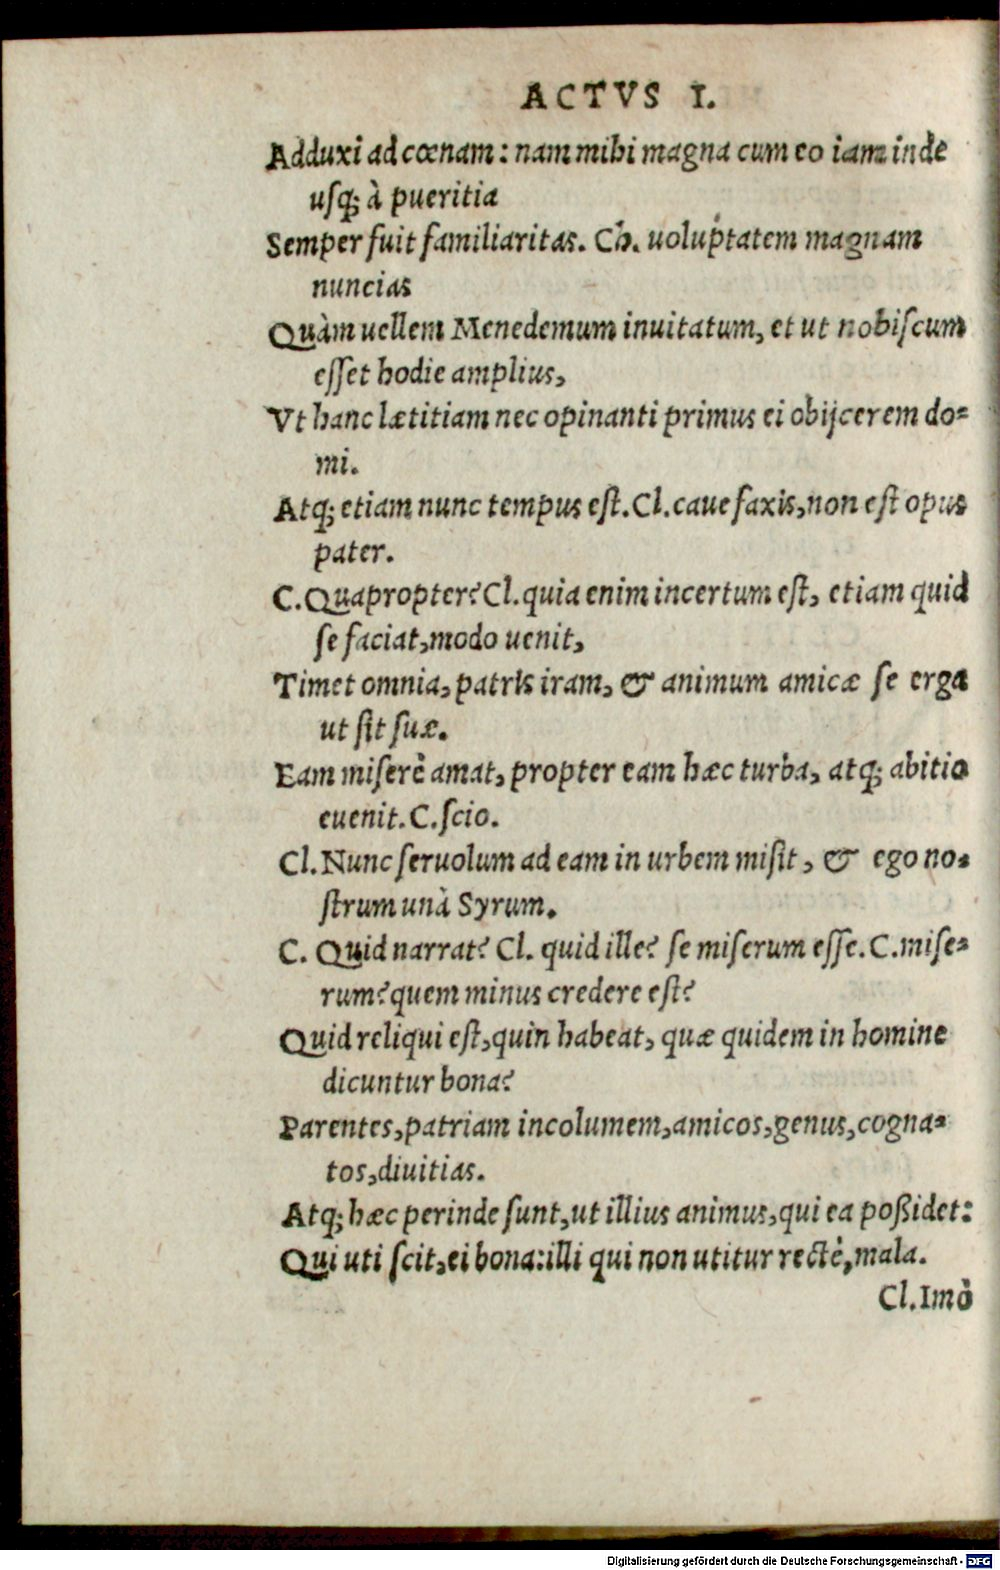 ACTVS I.
Adduxi ad cœnam: nam mihi magna cum eo iam inde
usq; à pueritia
Semper fuit familiaritas. Ch. uoluptatem magnam
nuncias
Quàm uellem Menedemum inuitatum, et ut nobiscum
esset hodie amplius,
Vt hanc lætitiam nec opinanti primus ei obijcerem do-
mi.
Atq; etiam nunc tempus est. Cl. caue faxis, non est opus
pater.
C. Quapropter? Cl. quia enim incertum est, etiam quid
se faciat, modo uenit,
Timet omnia, patris iram, & animum amicæ se erga
ut sit suæ.
Eam miserè amat, propter eam hæc turba, atq; abitio
euenit. C. scio.
Cl. Nunc seruolum ad eam in urbem misit, & ego no-
strum unà Syrum.
C. Quid narrat? Cl. quid ille? se miserum esse. C. mise-
rum? quem minus credere est?
Quid reliqui est, quin habeat, quæ quidem in homine
dicuntur bona?
Parentes, patriam incolumem, amicos, genus, cogna-
tos, diuitias.
Atq; hæc perinde sunt, ut illius animus, qui ea poßidet:
Qui uti scit, ei bona: illi qui non utitur rectè, mala.
Cl. Imò
Digitalisierung gefördert durch die Deutsche Forschungsgemeinschaft - DFG